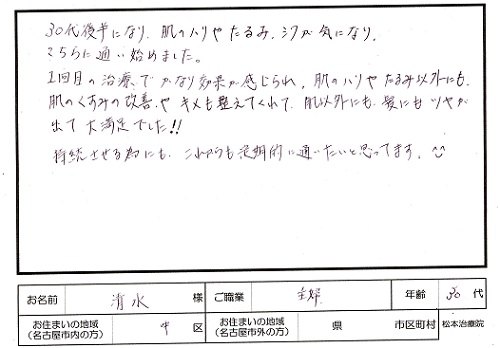 30代後半になり、肌のハリやたるみ、シワが気になり、
こちらに通い始めました。
1回目の治療でかなり効果が感じられ、肌のハリやたるみ以外にも、
肌のくすみの改善や、キメも整えてくれて、肌以外にも、髪にもツヤが
出て大満足でした!!
持続させる為にも、これからも定期的に通いたいと思ってます。^^
お名前 清水 様 ご職業 主婦 年齢 30 代
お住まいの地域 (名古屋市内の方) 中 区 お住まいの地域 (名古屋市外の方) 県 市区町村 松本治療院